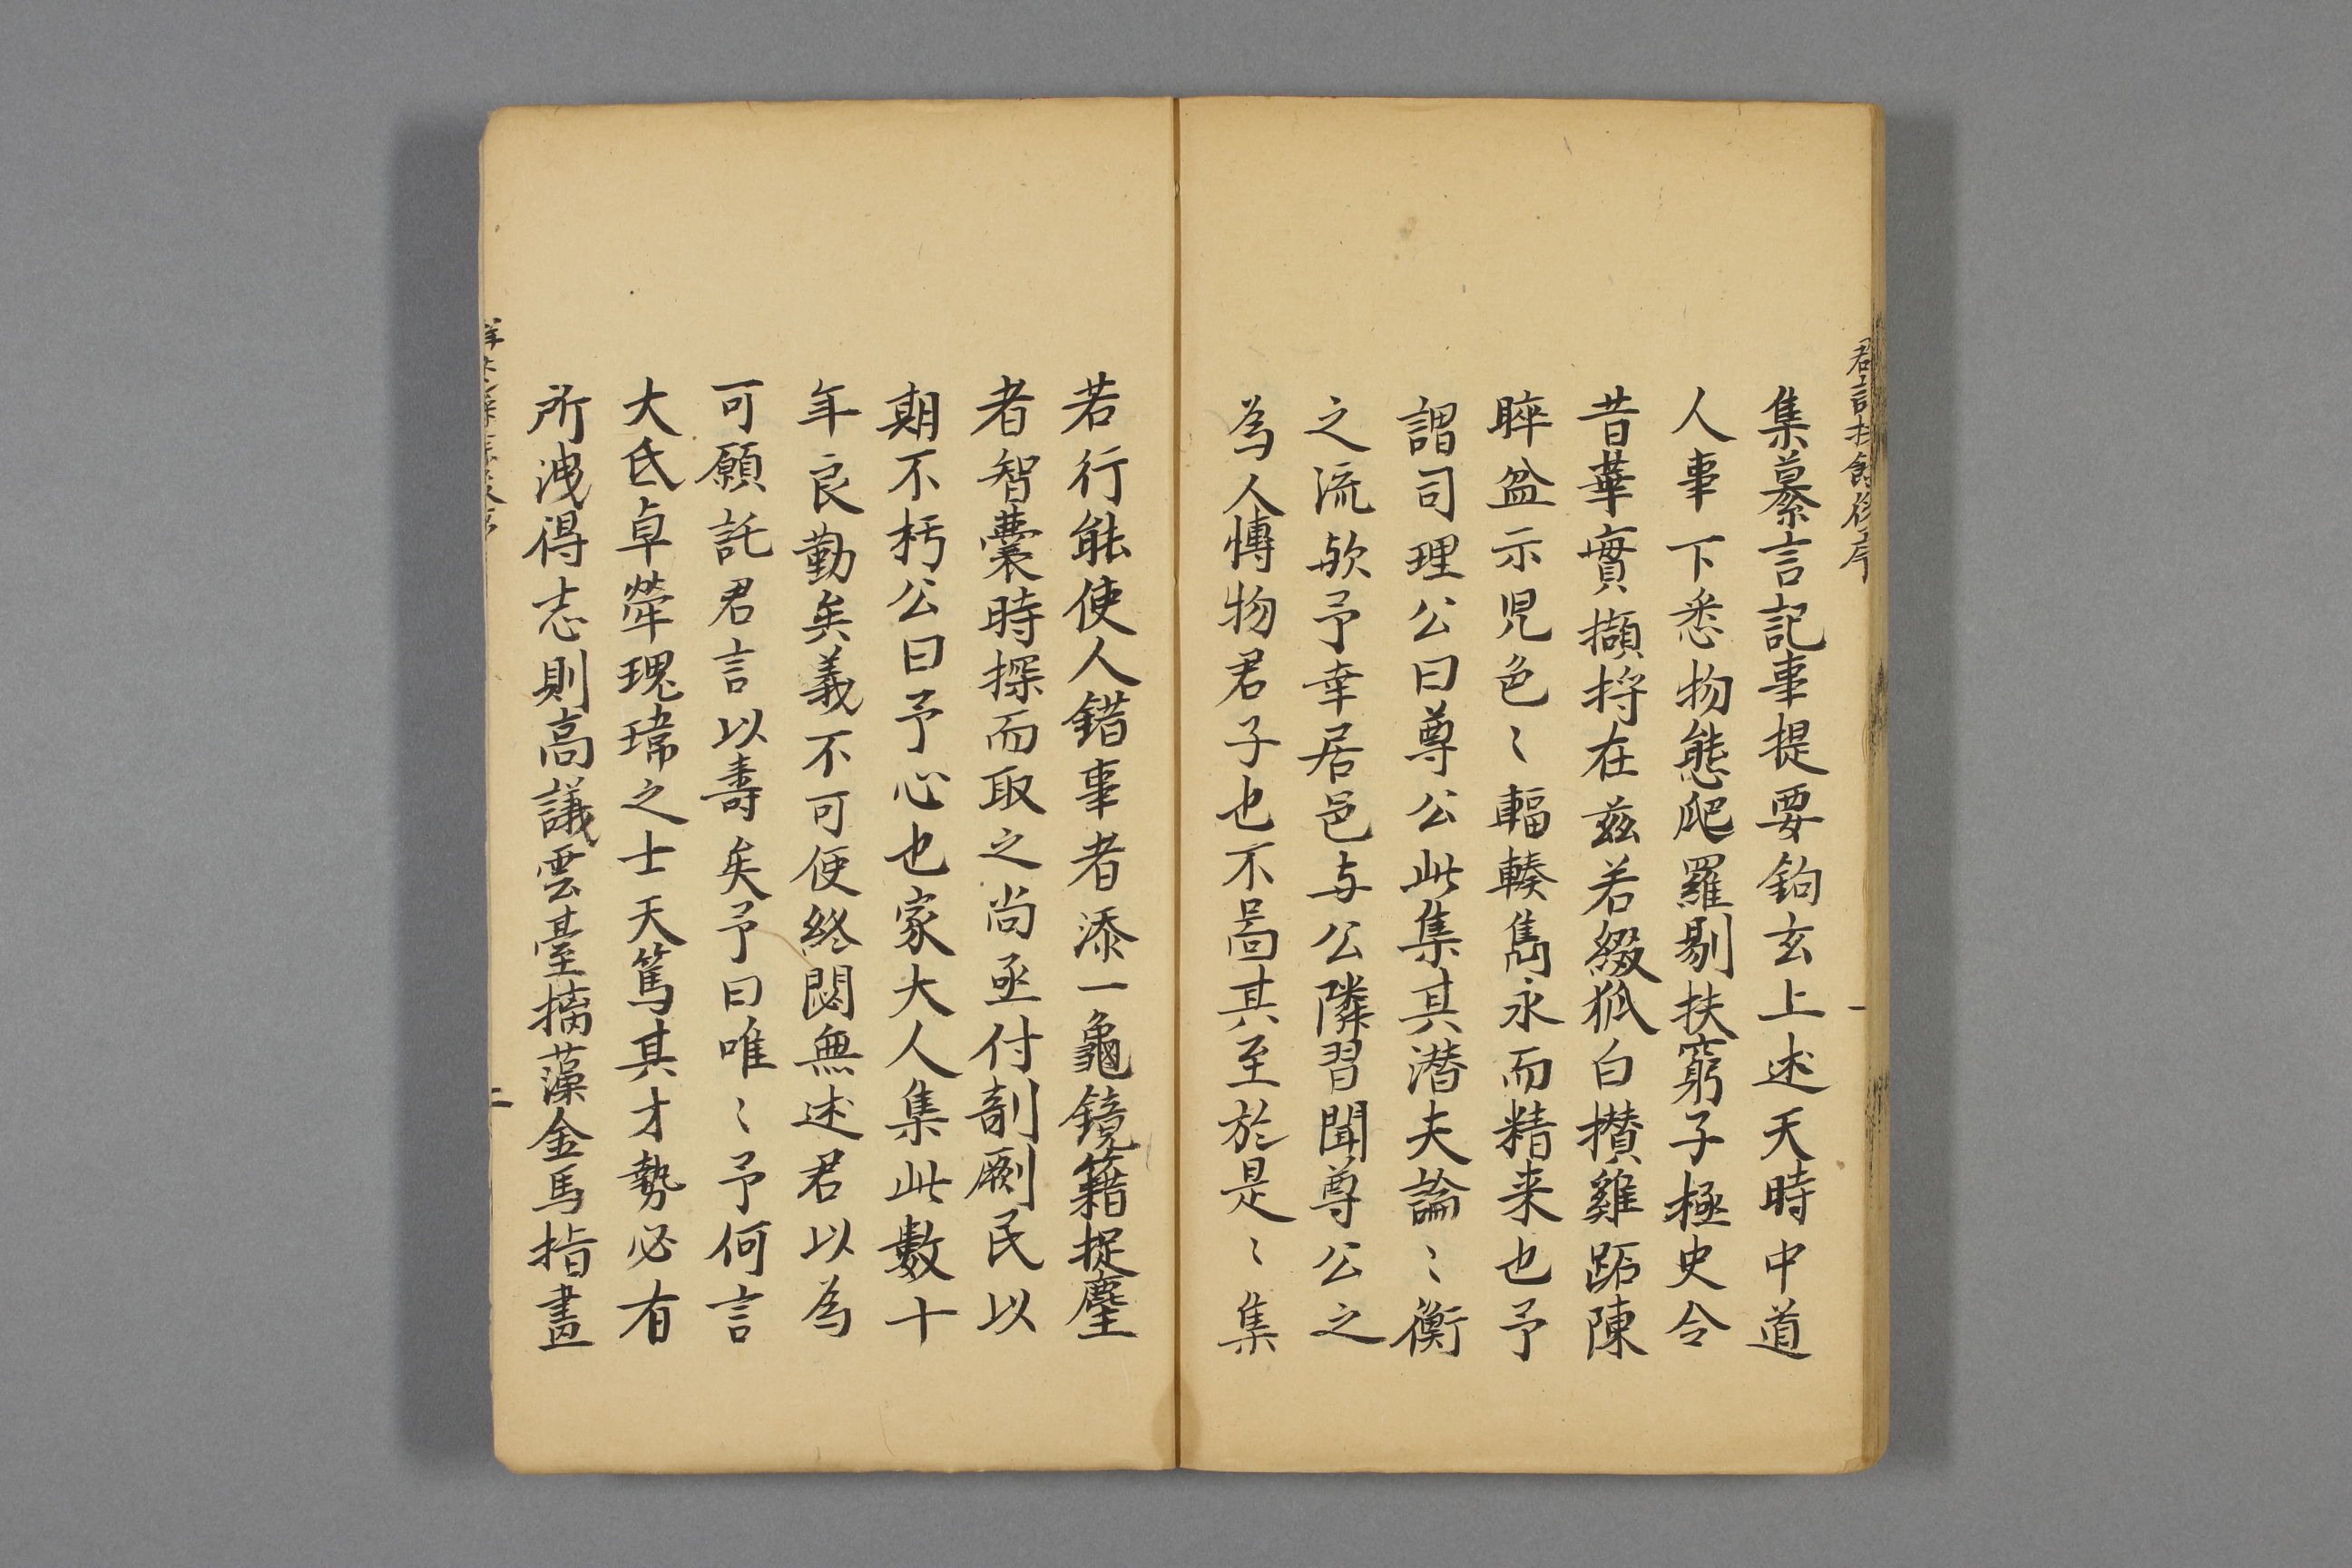 集纂言記事提要鉤玄上述天時中道
人事下悉物態爬羅剔抉窮子極史令
昔華實擷捋在兹若綴狐白攅雞跖陳
睟盆示児色〻輻輳雋永而精来也予
謂司理公曰尊公此集其潜夫論〻衡
之流欤予幸居邑与公隣習聞尊公之
為人慱物君子也不啚其至於是〻集
若行能使人錯事者添一龜鏡籍捉麈
者智囊時探而取之尚亟付剞劂民以
期不朽公曰予心也家大人集此數十
年良勤矣義不可使終閟無述君以為
可願託君言以壽矣予曰唯〻予何言
大氐卓犖瑰瑋之士天篤其才勢必有
所洩得志則高議雲臺摛藻金馬指畫
二